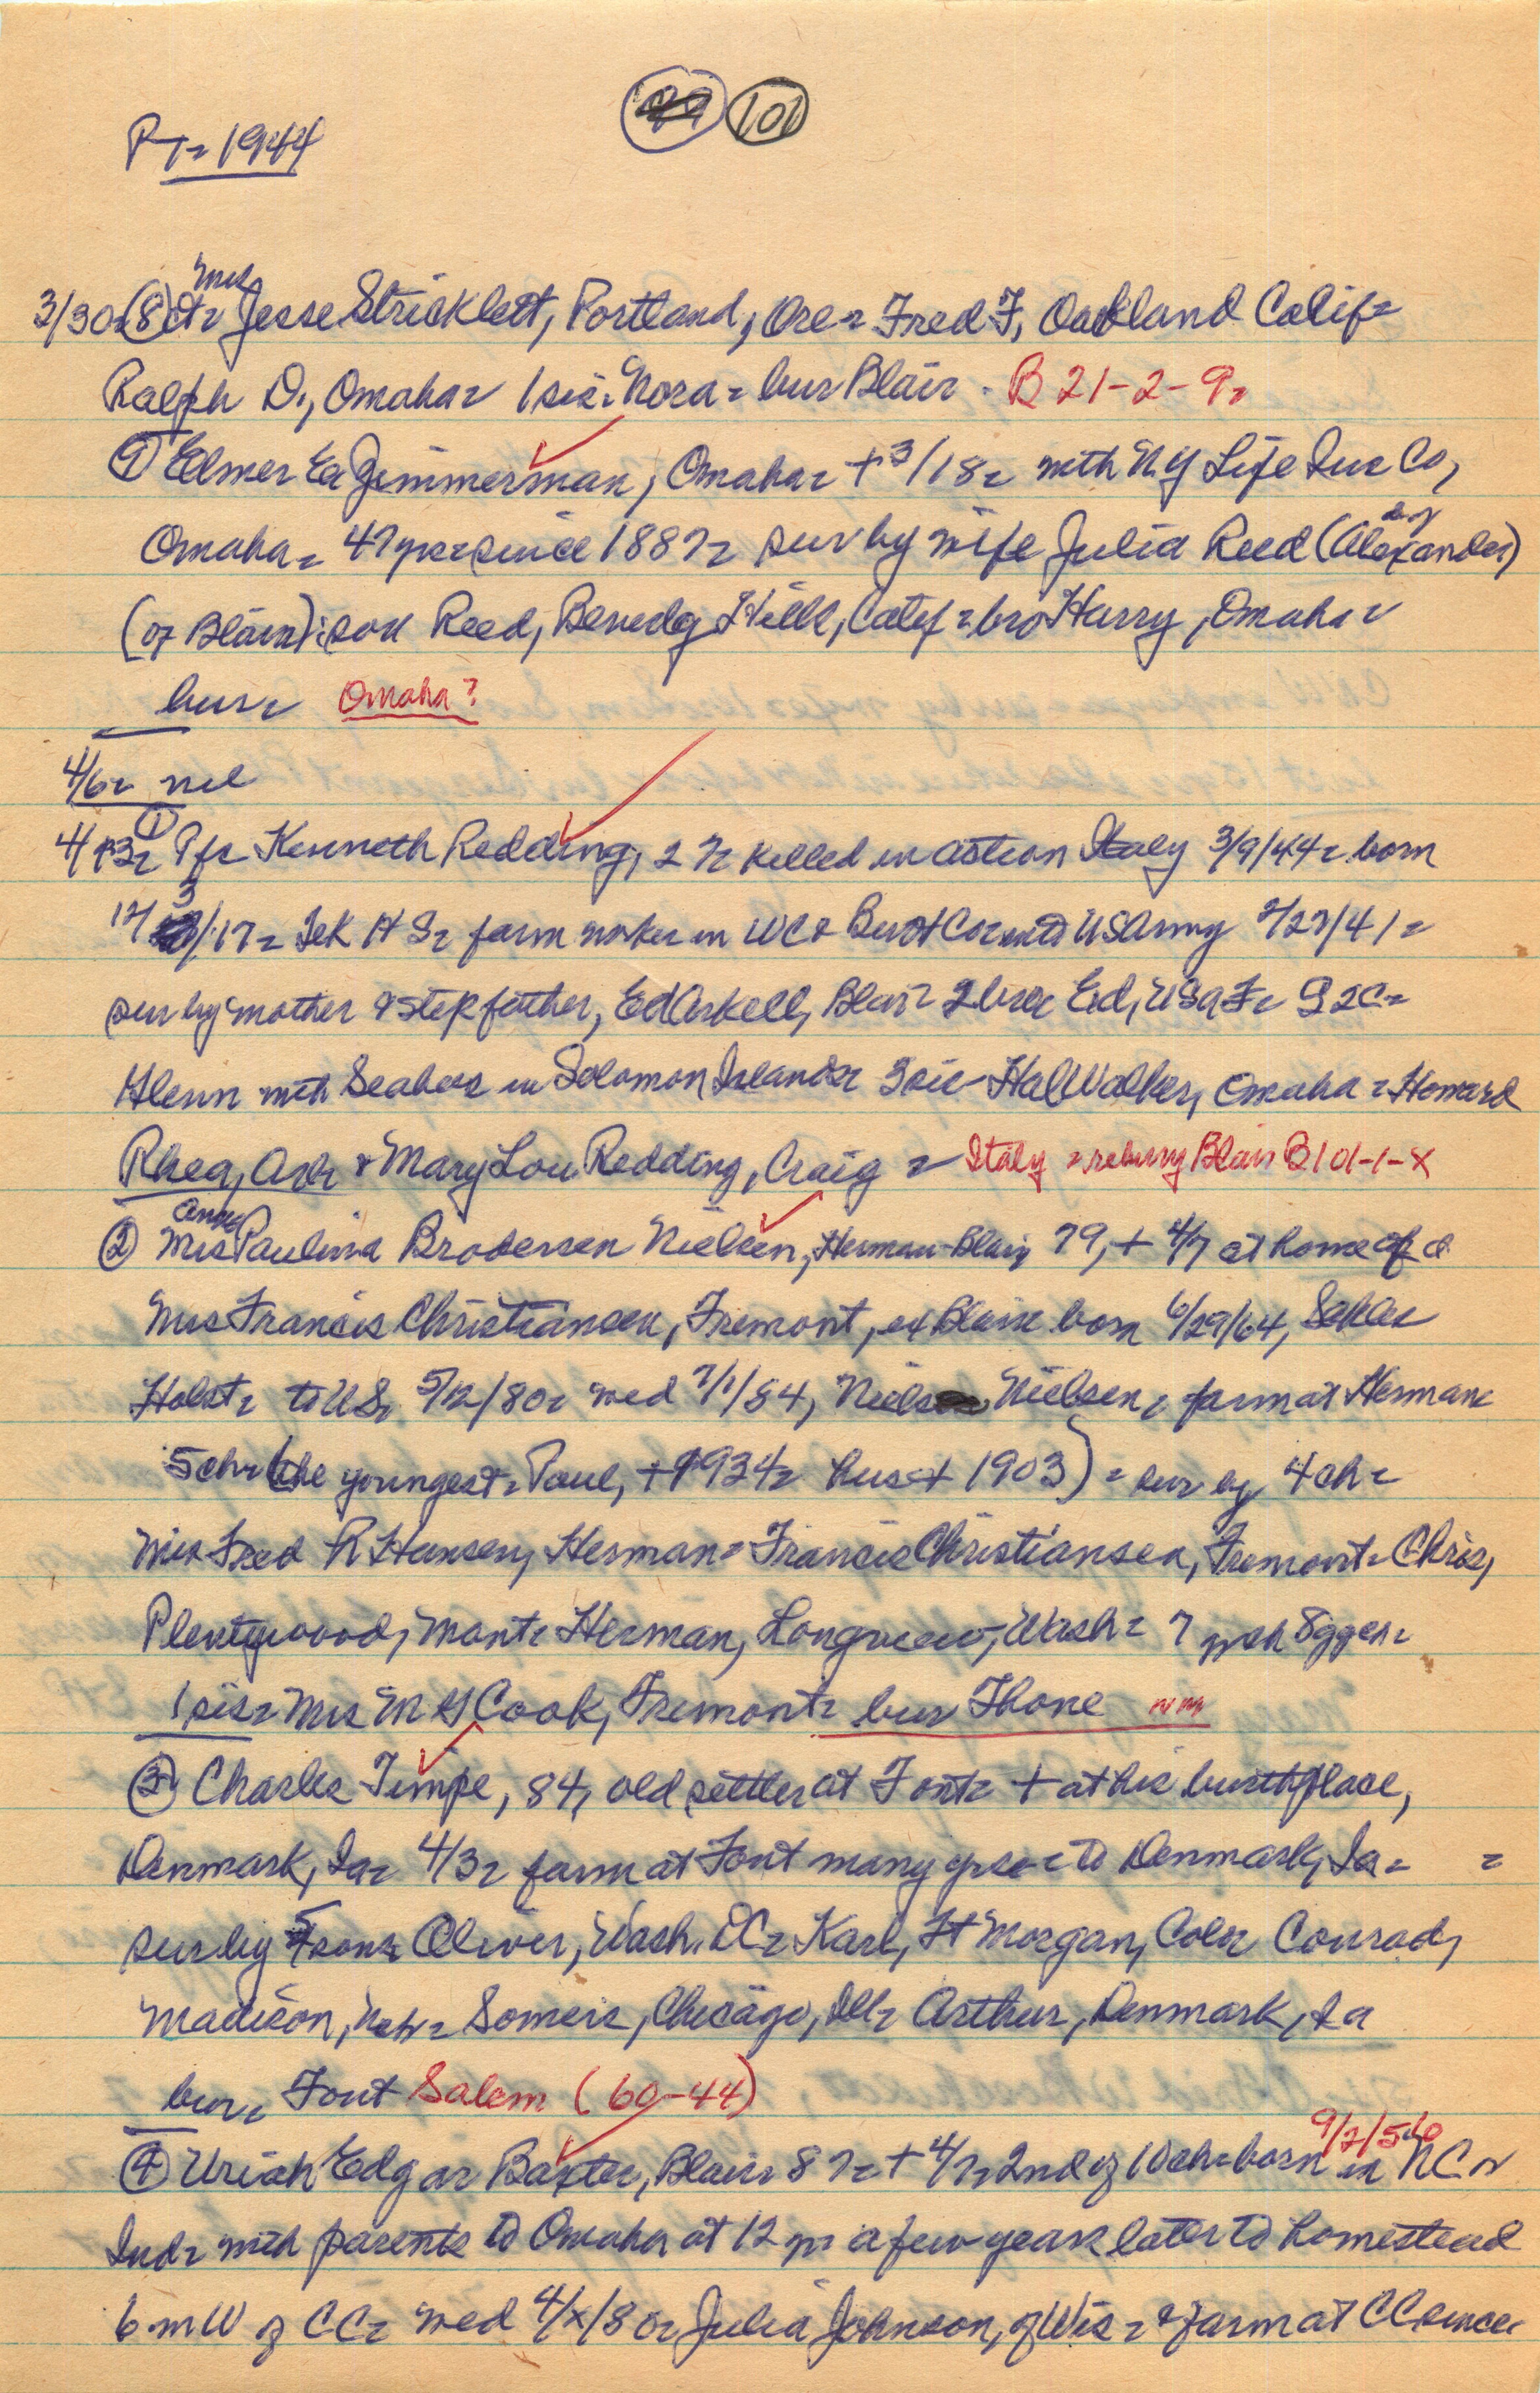 101
PT= 1944
3/30= (8) ct= Mrs Jesse Stricklett, Portland, Ore= Fred F, Oakland Calif=
Ralph D., Omaha= 1 sis= Nora= bur Blair - B 21-2-9=
(9) Elmer Ed Zimmerman, Omaha= + 3/18= with NY Life Ins Co,
Omaha= 47 yrs= since 1887= sur by wife Julia Reed (d of Alexander)
(of Blair): son Reed, Beverly Hills, Calif= bro Harry, Omaha=
bur= Omaha?
4/6= nil
4/13= (1) Pfc Kenneth Redding, 27= killed in action Italy 3/9/44= born
12/3/17= Tek H S= farm worker in WC & Burt Co= into US Army 2/27/41=
sur by mother & stepfather, Ed Arkell, Blair= 2 bro= Ed, USAF= S2C=
Glenn with Seabees in Solomon Islands= 3 sis- Hal Walker, Omaha= Howard
Rhea, Arl= & Mary Lou Redding, Craig = Italy = reburry Blair B101-1-X
(2) Mrs Anna Paulina Brodersen Nielsen, Herman-Blair, 79, + 4/7 at home of d
Mrs Francis Christiansen, Fremont, ex Blair= born 6/29/64, Schles
Holst= to US= 5/12/80= wed 7/1/84, Niels Nielsen= farm at Herman=
5 ch= (the youngest= Paul, + 1934= hus + 1903) = sur by 4 ch=
Mrs Fred R Hansen, Herman= Francis Christiansen, Fremont= Chris,
Plentywood, Mont= Herman, Longview, Wash= 7 gch 8 ggch=
1 sis= Mrs M H Cook, Fremont= bur Fhone nw
(3) Charles Timpe, 84, old settler at Font= + at his birthplace,
Denmark, Ia= 4/3= farm at Font many yrs= to Denmark, Ia= =
sur by 5 sons= Oliver, Wash. DC= Karl, Ft Morgan, Colo= Conrad,
Madison, Neb= Someis, Chicago, Ill= Arthur, Denmark, Ia
bur= Font Salem (60-44)
(4) Uriah Edgar Baxter, Blair= 87= + 4/7= 2nd of 10 ch= born 9/2/56 in NC=
Ind= with parents to Omaha at 12 yr= a few years later to homestead
6 m W of CC= wed 4/x/80= Julia Johnson, of Wis= & farm at CC since